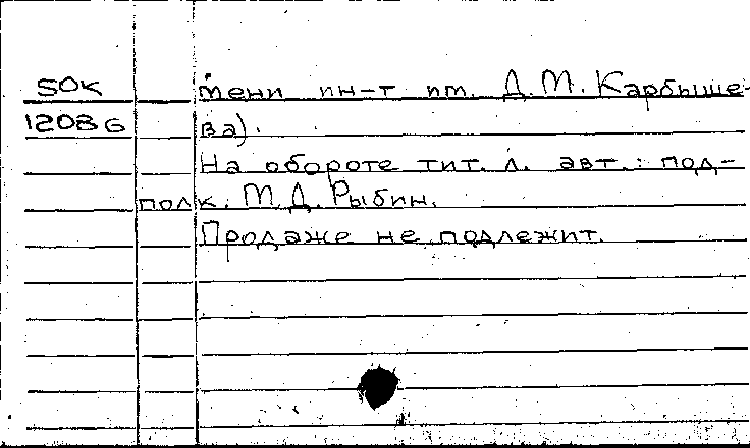 50к
12086
мени ин-т им. Д.М. Карбыше-
ва).
На обороте тит. л. авт.: под-
полк. М.Д. Рыбин.
Продаже не подлежит.